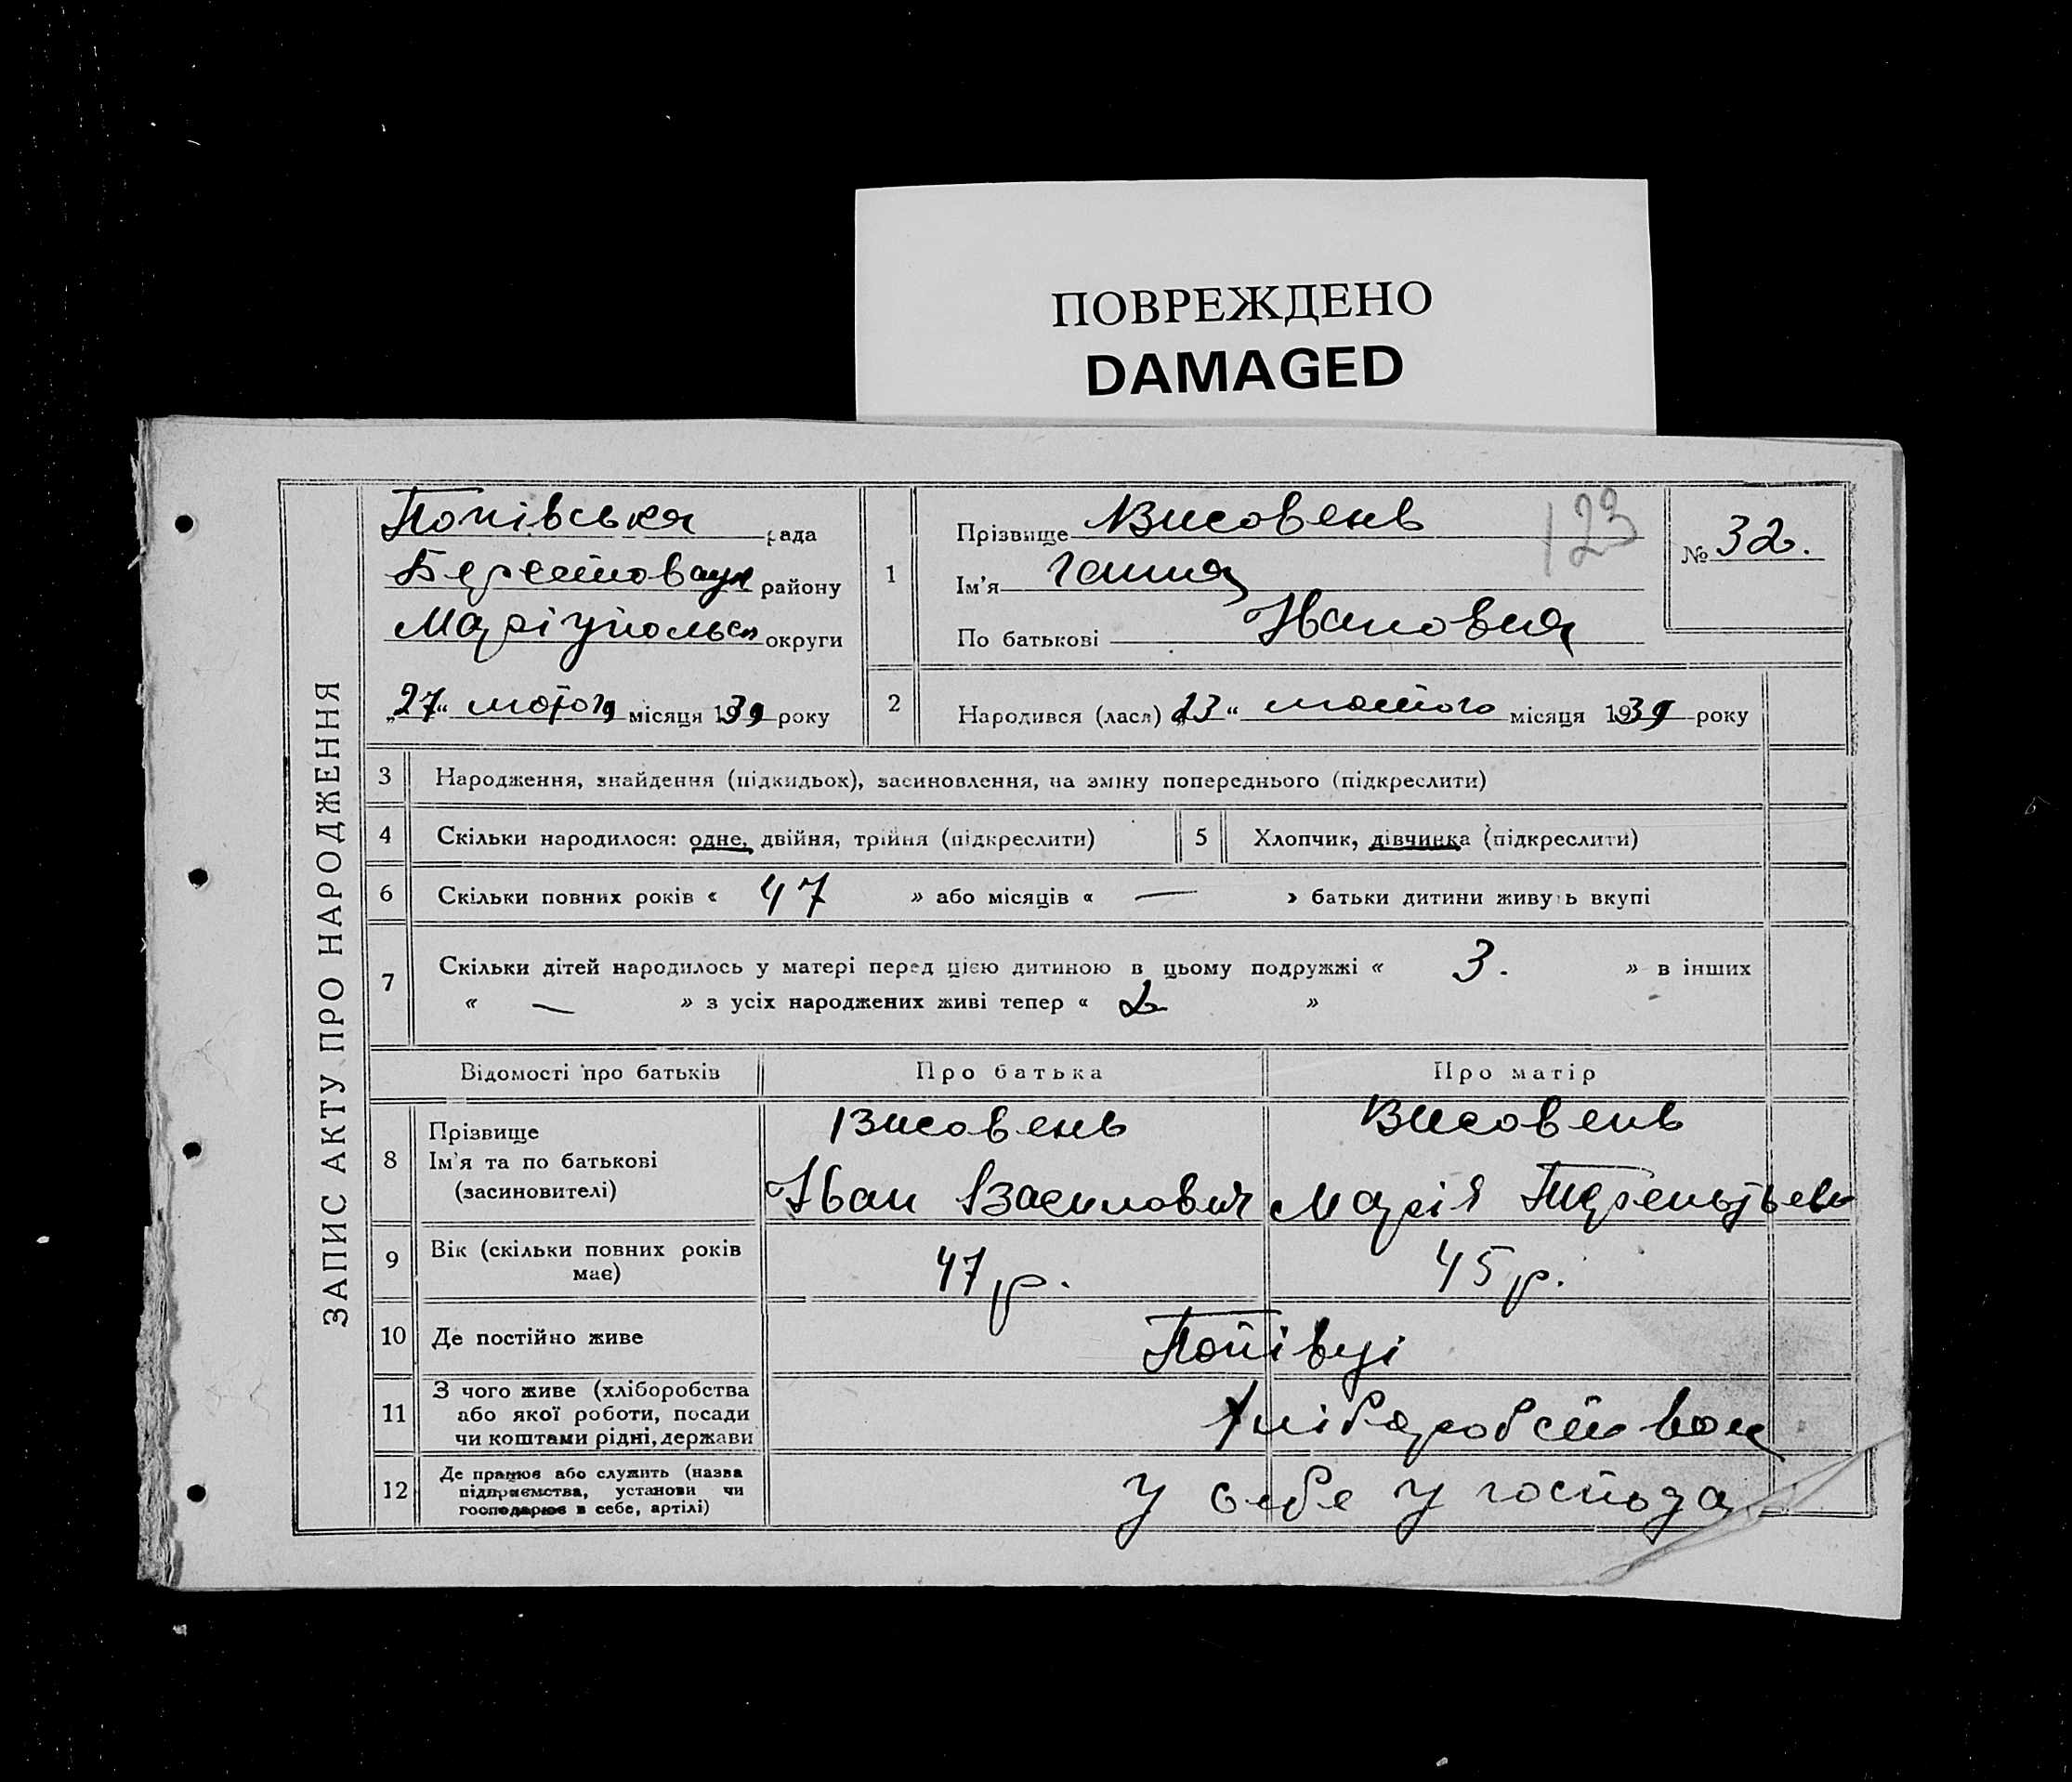 ПОВРЕЖДЕНО
DAMAGED
ЗАПИС АКТУ ПРО НАРОДЖЕННЯ
Попівська рада
району
Маріупольськ округи
"27" лютого місяця 1939 року
1
Прізвище Висовень
Ім'я Ганна
По батькові Івановна
123
№ 32.
2
Народився (лась) "23" лютого місяця 1939 року
3 Народження, знайдення (підкидьох), засиновлення, на зміну попереднього (підкреслити)
4 Скільки народилося: одне, двійня, трійня (підкреслити)
5 Хлопчик, дівчинка (підкреслити)
6 Скільки повних років « 47 » або місяців « — » батьки дитини живуть вкупі
7 Скільки дітей народилось у матері перед цією дитиною в цьому подружжі « 3. » в інших
« — » з усіх народжених живі тепер « 2 »
Відомості про батьків
Про батька
Про матір
8 Прізвище
Ім'я та по батькові
(засиновителі)
Висовень
Іван Василович
Висовень
Марія
9 Вік (скільки повних років
має)
47 р.
45 р.
10 Де постійно живе
Попівці
11 З чого живе (хліборобства
або якої роботи, посади
чи коштами рідні, держави
хліборобством
12 Де працює або служить (назва
підприємства, установи чи
господарює в себе, артілі)
У себе у господа